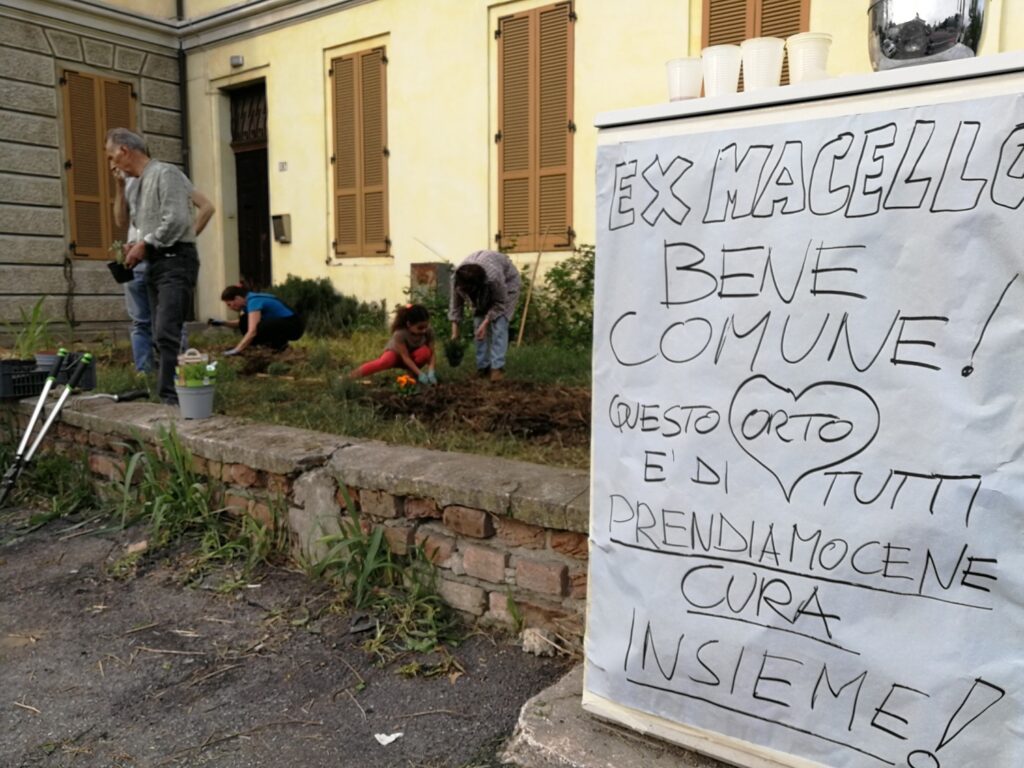 EX MACELLO
BENE
COMUNE!
QUESTO ORTO
E' DI TUTTI
PRENDIAMOCENE
CURA
INSIEME!